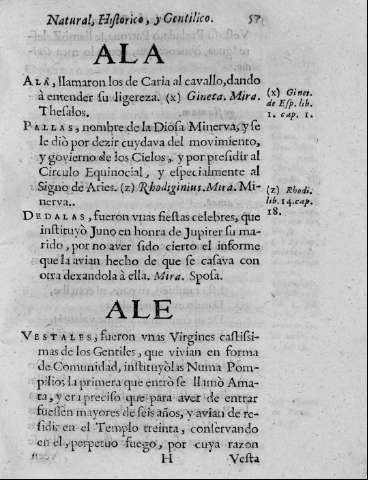 Natural, Historico, y Gentilico. 57
ALA
ALA, llamaron los de Caria al cavallo, dando
à entender su ligereza. (x) Gineta. Mira.
Thesalos.
(x) Gines.
de Esp. lib.
1. cap. 1.
PALLAS, nombre de la Diosa Minerva, y se
le diò por dezir cuydava del movimiento,
y govierno de los Cielos, y por presidir al
Circulo Equinocial, y especialmente al
Signo de Aries. (z) Rhodiginius. Mira. Mi-
nerva..
(z) Rhodi.
lib. 14. cap.
18.
DEDALAS, fueron vnas fiestas celebres, que
instituyò Juno en honra de Jupiter su ma-
rido, por no aver sido cierto el informe
que la avian hecho de que se casava con
otra dexandola à ella. Mira. Sposa.
ALE
VESTALES, fueron vnas Virgines castissi-
mas de los Gentiles, que vivian en forma
de Comunidad, instituyòlas Numa Pom-
pilio; la primera que entrò se llamò Ama-
ta, y era preciso que para aver de entrar
fuessen mayores de seis años, y avian de re-
sidir en el Templo treinta, conservando
en el, perpetuo fuego, por cuya razon
H Vesta